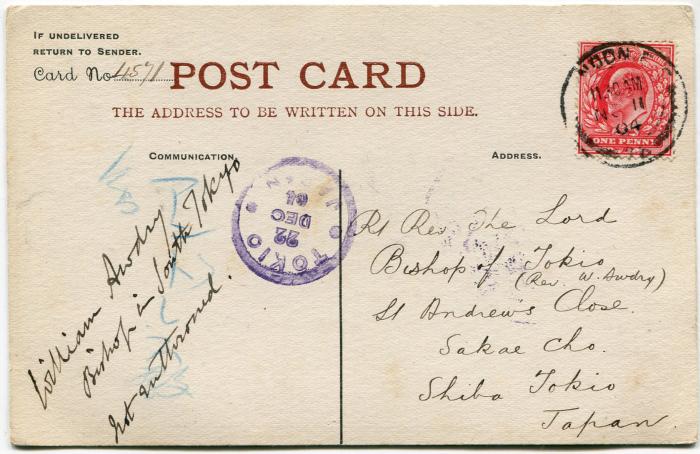 IF UNDELIVERED
RETURN TO SENDER.
Card No 4571
POST CARD
THE ADDRESS TO BE WRITTEN ON THIS SIDE.
COMMUNICATION.
ADDRESS.
William Awdry
Bishop in South Tokyo
not enthroned.
TOKIO
22
DEC
04
11.30 AM
11
04
ONE PENNY
Rt Rev. The Lord
Bishop of Tokio
(Rev. W. Awdry)
St Andrews Close.
Sakae Cho.
Shiba Tokio
Japan.